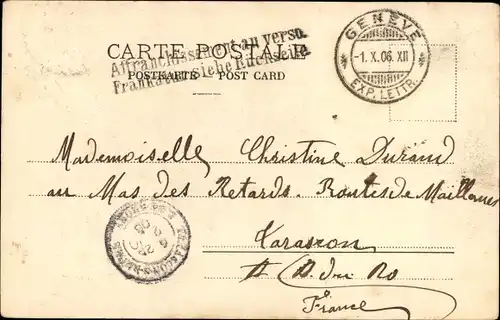 CARTE POSTALE
Affranchissement au verso.
Frankatur siehe Rückseite
POSTKARTE POST CARD
GENÈVE
-1.X.06.XII
EXP. LETTR.
Mademoiselle Christine Durand
au Mas des Retards. Route de Maillanes
Tarascon
B. du Ro
France
TARASCON-S-RHONE